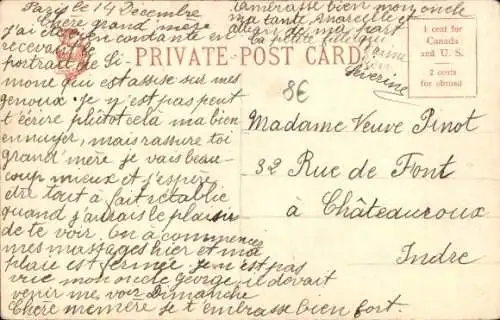 Paris le 14 Décembre
Chère grand mère
j'ai été bien contente en
recevant le
portrait de Si-
mone qui est assise sur mes
genoux. Je n'y est pas peut
t'écrire plutot cela ma bien
ennuyer, mais rassure toi
grand'mère je vais beau-
coup mieux et j'espère
etre tout à fait rétablie
quand j'aurais le plaisir
de te voir. On à commencer
mes massages hier et ma
plaie est fermée. Je n'est pas
vue mon oncle George, il devait
venir me voir Dimanche
Chère mémère je t'embrasse bien fort.
embrasse bien mon oncle
ma tante Marcelle et
de ma part
ta petite fille qui
t'aime
bien
Séverine
PRIVATE POST CARD
1 cent for
Canada
and U. S.
2 cents
for abroad
8€
Madame Veuve Pinot
32 Rue de Font
à Châteauroux
Indre